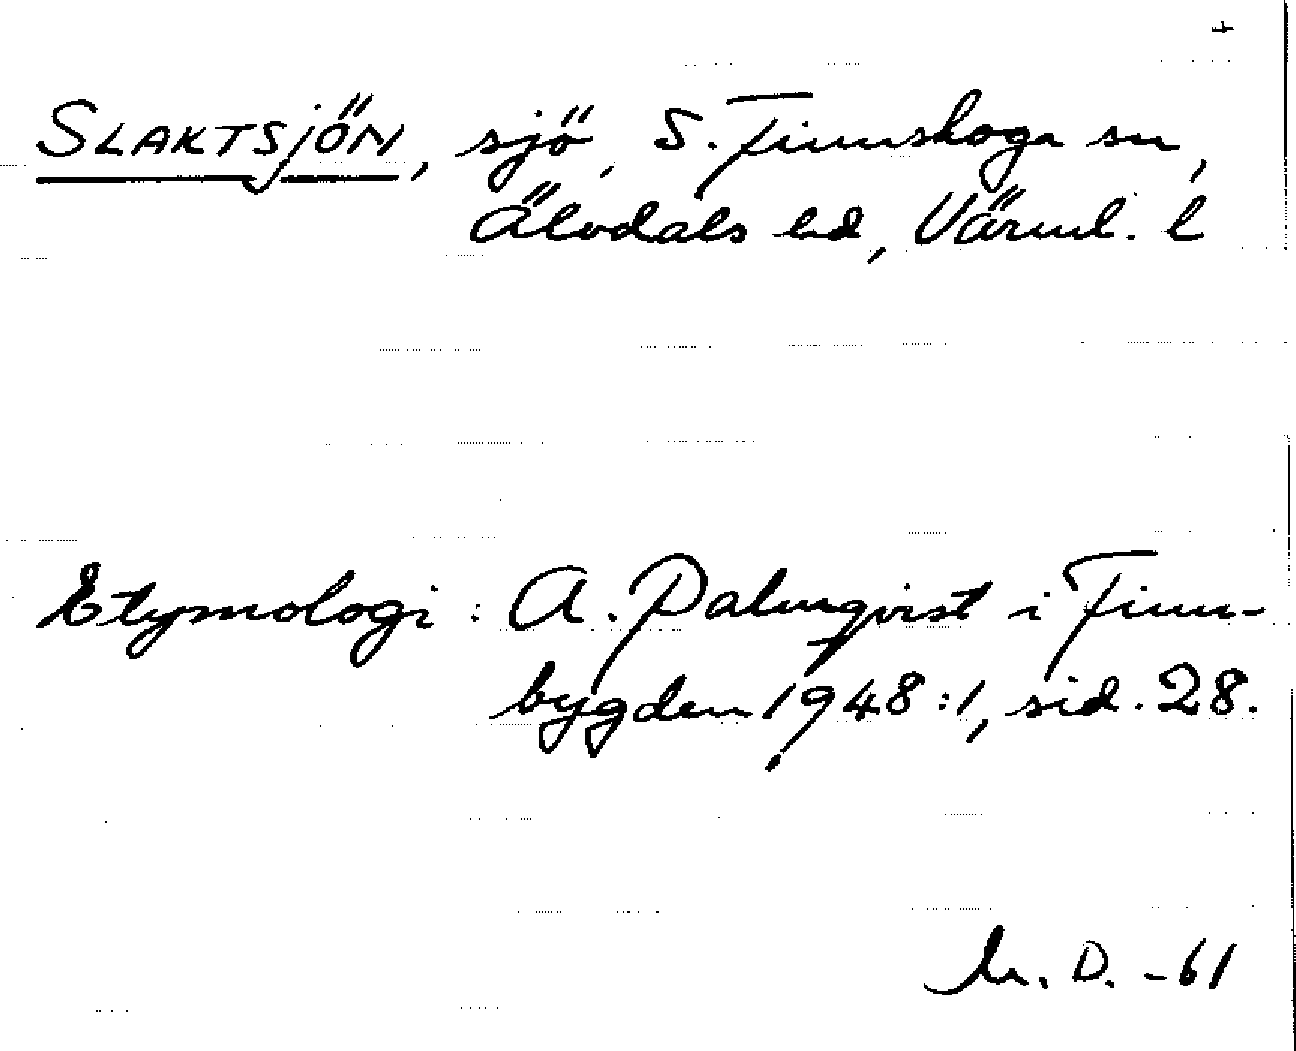 SLAKTSJÖN, sjö, S. Finnskoga sn,
Älvdals hd, Värml. l
Etymologi: A. Palmqvist i Finn-
bygden 1948:1, sid. 28.
D. -61